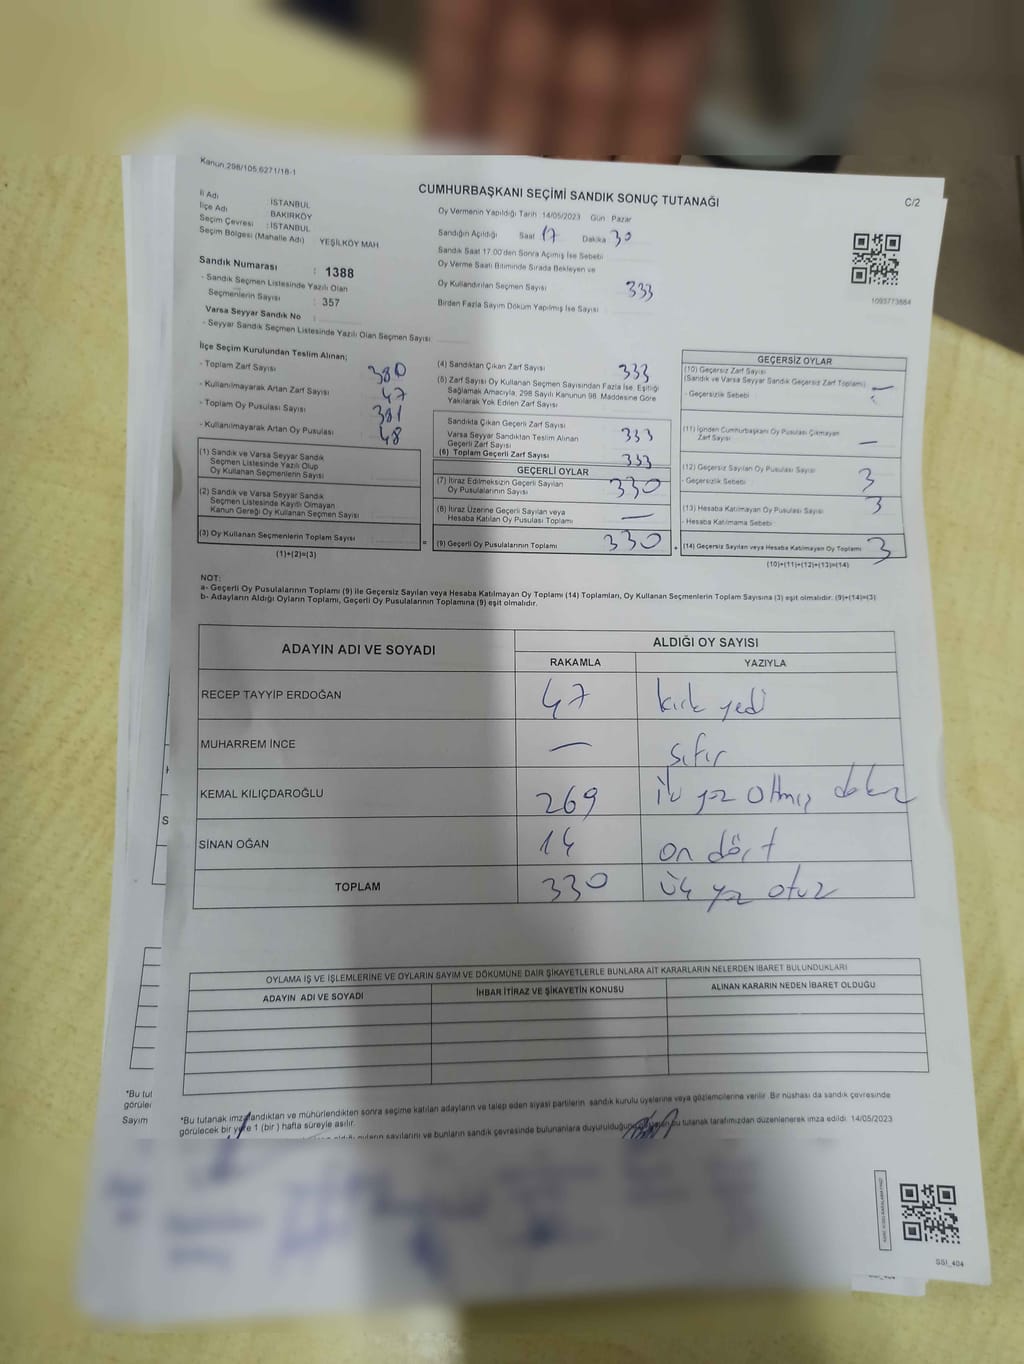 Kanun:298/105,6271/18-1
CUMHURBAŞKANI SEÇİMİ SANDIK SONUÇ TUTANAĞI
C/2
İl Adı İSTANBUL
İlçe Adı BAKIRKÖY
Seçim Çevresi : İSTANBUL
Seçim Bölgesi (Mahalle Adı) YEŞİLKÖY MAH.
Sandık Numarası : 1388
- Sandık Seçmen Listesinde Yazılı Olan
Seçmenlerin Sayısı : 357
Varsa Seyyar Sandık No
- Seyyar Sandık Seçmen Listesinde Yazılı Olan Seçmen Sayısı
Oy Vermenin Yapıldığı Tarih 14/05/2023 Gün Pazar
Sandığın Açıldığı Saat 17 Dakika 30
Sandık Saat 17.00'den Sonra Açımış İse Sebebi
Oy Verme Saati Bitiminde Sırada Bekleyen ve
Oy Kullandırılan Seçmen Sayısı 333
Birden Fazla Sayım Döküm Yapılmış İse Sayısı
1093773884
İlçe Seçim Kurulundan Teslim Alınan;
- Toplam Zarf Sayısı 380
- Kullanılmayarak Artan Zarf Sayısı 47
- Toplam Oy Pusulası Sayısı 381
- Kullanılmayarak Artan Oy Pusulası 48
(1) Sandık ve Varsa Seyyar Sandık
Seçmen Listesinde Yazılı Olup
Oy Kullanan Seçmenlerin Sayısı
(2) Sandık ve Varsa Seyyar Sandık
Seçmen Listesinde Kayıtlı Olmayan
Kanun Gereği Oy Kullanan Seçmen Sayısı
(3) Oy Kullanan Seçmenlerin Toplam Sayısı
(1)+(2)=(3)
(4) Sandıktan Çıkan Zarf Sayısı 333
(5) Zarf Sayısı Oy Kullanan Seçmen Sayısından Fazla İse, Eşitliği
Sağlamak Amacıyla, 298 Sayılı Kanunun 98. Maddesine Göre
Yakılarak Yok Edilen Zarf Sayısı
Sandıkta Çıkan Geçerli Zarf Sayısı 333
Varsa Seyyar Sandıktan Teslim Alınan
Geçerli Zarf Sayısı
(6) Toplam Geçerli Zarf Sayısı 333
GEÇERLİ OYLAR
(7) İtiraz Edilmeksizin Geçerli Sayılan
Oy Pusulalarının Sayısı 330
(8) İtiraz Üzerine Geçerli Sayılan veya
Hesaba Katılan Oy Pusulası Toplamı —
= (9) Geçerli Oy Pusulalarının Toplamı 330
GEÇERSİZ OYLAR
(10) Geçersiz Zarf Sayısı
(Sandık ve Varsa Seyyar Sandık Geçersiz Zarf Toplamı) —
- Geçersizlik Sebebi
(11) İçinden Cumhurbaşkanı Oy Pusulası Çıkmayan
Zarf Sayısı —
(12) Geçersiz Sayılan Oy Pusulası Sayısı 3
- Geçersizlik Sebebi
(13) Hesaba Katılmayan Oy Pusulası Sayısı 3
- Hesaba Katılmama Sebebi
+ (14) Geçersiz Sayılan veya Hesaba Katılmayan Oy Toplamı 3
(10)+(11)+(12)+(13)=(14)
NOT:
a- Geçerli Oy Pusulalarının Toplamı (9) ile Geçersiz Sayılan veya Hesaba Katılmayan Oy Toplamı (14) Toplamları, Oy Kullanan Seçmenlerin Toplam Sayısına (3) eşit olmalıdır. (9)+(14)=(3)
b- Adayların Aldığı Oyların Toplamı, Geçerli Oy Pusulalarının Toplamına (9) eşit olmalıdır.
ADAYIN ADI VE SOYADI
ALDIĞI OY SAYISI
RAKAMLA YAZIYLA
RECEP TAYYİP ERDOĞAN 47 kırk yedi
MUHARREM İNCE — sıfır
KEMAL KILIÇDAROĞLU 269 iki yüz altmış dokuz
SİNAN OĞAN 14 on dört
TOPLAM 330 üç yüz otuz
OYLAMA İŞ VE İŞLEMLERİNE VE OYLARIN SAYIM VE DÖKÜMÜNE DAİR ŞİKAYETLERLE BUNLARA AİT KARARLARIN NELERDEN İBARET BULUNDUKLARI
ADAYIN ADI VE SOYADI İHBAR İTİRAZ VE ŞİKAYETİN KONUSU ALINAN KARARIN NEDEN İBARET OLDUĞU
*Bu tutanak imzalandıktan ve mühürlendikten sonra seçime katılan adayların ve talep eden siyasi partilerin sandık kurulu üyelerine veya gözlemcilerine verilir. Bir nüshası da sandık çevresinde
görülecek bir yere 1 (bir) hafta süreyle asılır.
oyların sayılarını ve bunların sandık çevresinde bulunanlara duyurulduğunu bu tutanak tarafımızdan düzenlenerek imza edildi. 14/05/2023
*Bu tut
görülec
Sayım
SSI_404